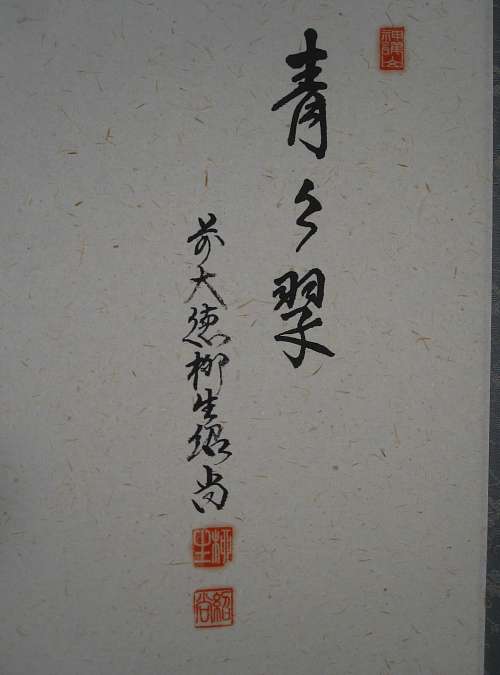 神護山
青々翠
前大徳柳生紹尚
柳生
紹尚